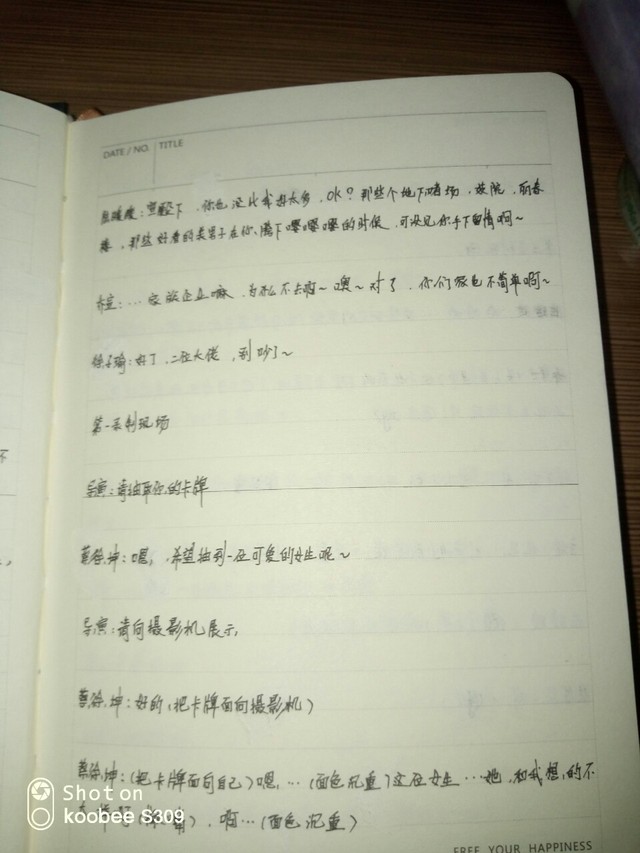 DATE / NO. TITLE
你也没比我好太多，OK？那些个地下赌场，妓院，丽春
楼，那些好看的美男子在你胯下嘤嘤嘤的时候，可没见你手下留情啊～
…家族企业嘛，为什么不去啊～噢～对了，你们家也不简单啊～
徐子瑜：好了，二位大佬，别吵了～
第一录制现场
导演：请抽取你的卡牌
蔡徐坤：嗯，希望抽到一位可爱的女生呢～
导演：请向摄影机展示，
蔡徐坤：好的，（把卡牌面向摄影机）
蔡徐坤：（把卡牌面向自己）嗯，…（面色沉重）这位女生…她，和我想，的不
啊…（面色沉重）
FREE YOUR HAPPINESS
Shot on
koobee S309